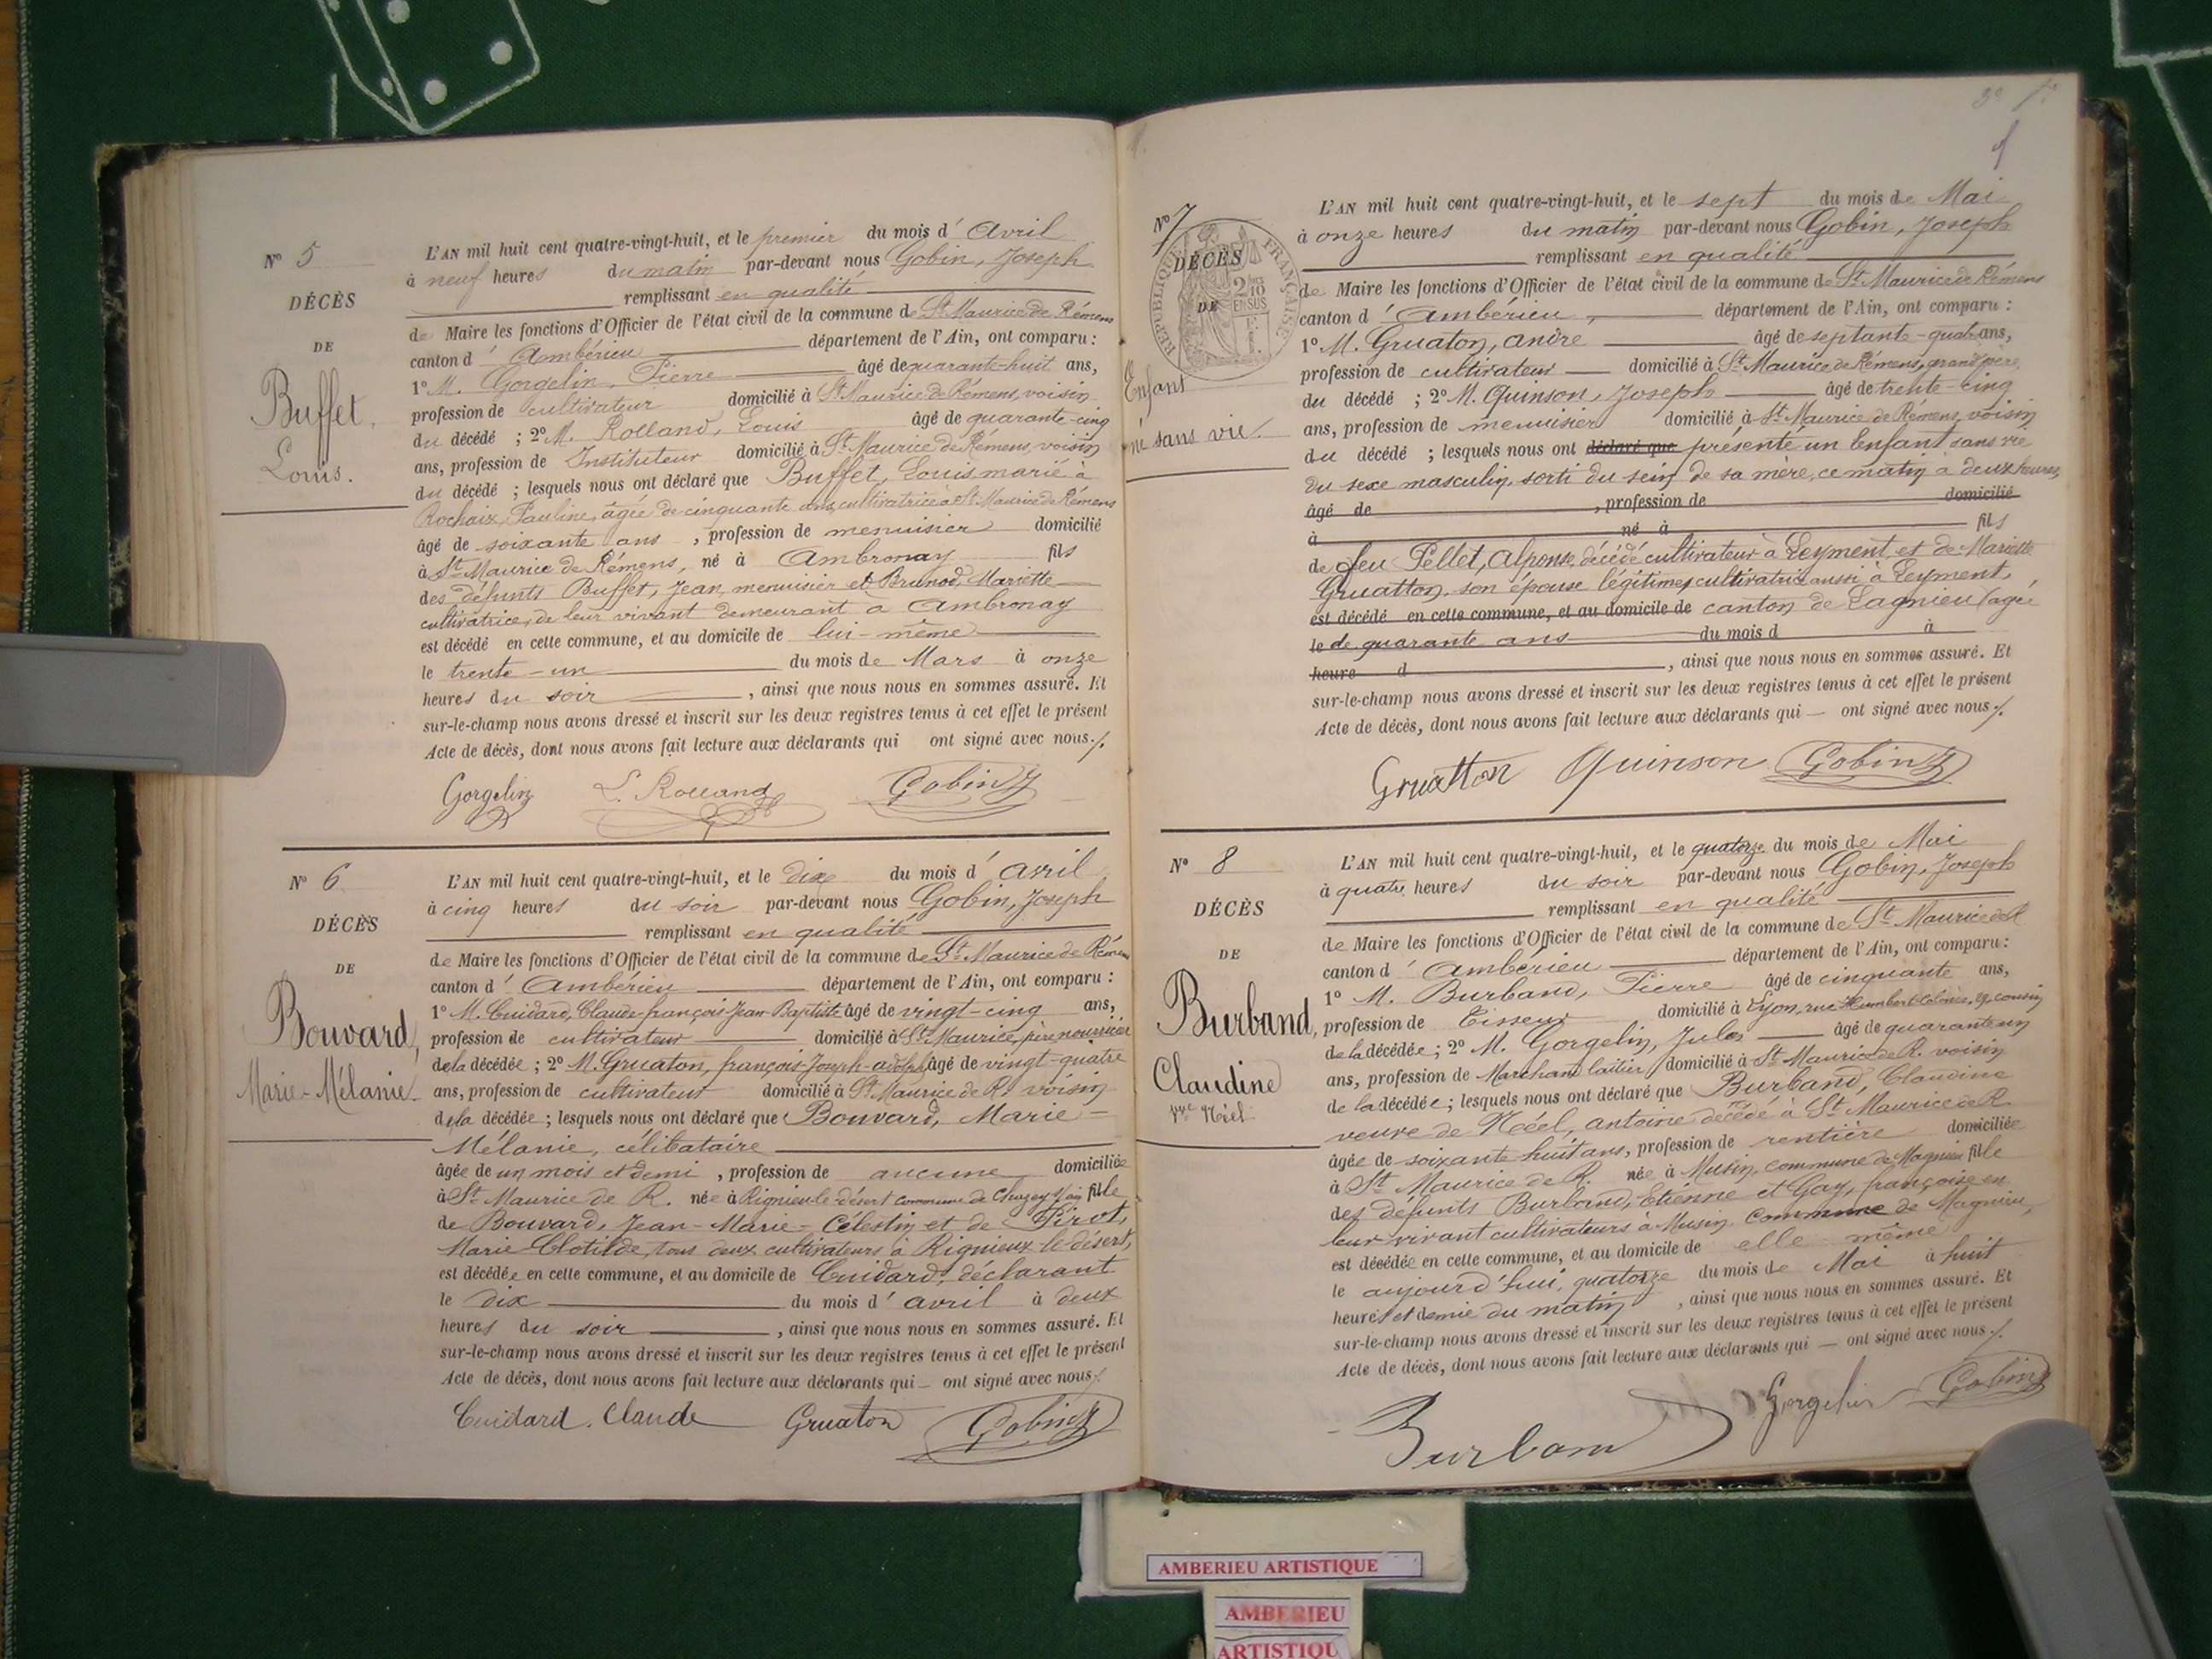 N° 5
DÉCÈS
DE
Buffet,
Louis.
L'AN mil huit cent quatre-vingt-huit, et le premier du mois d' Avril
à neuf heures du matin par-devant nous Gobin, Joseph
remplissant en qualité
de Maire les fonctions d'Officier de l'état civil de la commune de St Maurice de Rémens
canton d' Ambérieu département de l'Ain, ont comparu :
1° M. Gorgelin, Pierre âgé de quarante-huit ans,
profession de cultivateur domicilié à St Maurice de Rémens, voisin
du décédé ; 2° M. Rolland, Louis âgé de quarante-cinq
ans, profession de Instituteur domicilié à St Maurice de Rémens, voisin
du décédé ; lesquels nous ont déclaré que Buffet, Louis, marié à
Rochaix, Pauline, âgée de cinquante ans, cultivatrice à St Maurice de Rémens
âgé de soixante ans , profession de menuisier domicilié
à St Maurice de Rémens, né à Ambronay fils
des défunts Buffet, Jean, menuisier et Brunod, Mariette
cultivatrice, de leur vivant demeurant à Ambronay
est décédé en cette commune, et au domicile de lui-même
le trente-un du mois de Mars à onze
heures du soir , ainsi que nous nous en sommes assuré. Et
sur-le-champ nous avons dressé et inscrit sur les deux registres tenus à cet effet le présent
Acte de décès, dont nous avons fait lecture aux déclarants qui ont signé avec nous./.
Gorgelin L. Rolland Gobin J
N° 6
DÉCÈS
DE
Bouvard,
Marie-Mélanie.
L'AN mil huit cent quatre-vingt-huit, et le dix du mois d' avril
à cinq heures du soir par-devant nous Gobin, Joseph
remplissant en qualité
de Maire les fonctions d'Officier de l'état civil de la commune de St Maurice de Rémens
canton d' Ambérieu département de l'Ain, ont comparu :
1° M. Cuidard, Claude-françois-Jean-Baptiste âgé de vingt-cinq ans,
profession de cultivateur domicilié à St Maurice, père nourricier
de la décédée ; 2° M. Gruaton, françois-Joseph-adolphe âgé de vingt-quatre
ans, profession de cultivateur domicilié à St Maurice de R. voisin
de la décédée ; lesquels nous ont déclaré que Bouvard, Marie-
Mélanie, célibataire
âgée de un mois et demi , profession de aucune domiciliée
à St Maurice de R. née à Rignieu le désert commune de Chazey s/ain fille
de Bouvard, Jean-Marie-Célestin et de Pirot,
Marie-Clotilde, tous deux cultivateurs à Rignieux-le-désert,
est décédée en cette commune, et au domicile de Cuidard, déclarant
le dix du mois d' avril à deux
heures du soir , ainsi que nous nous en sommes assuré. Et
sur-le-champ nous avons dressé et inscrit sur les deux registres tenus à cet effet le présent
Acte de décès, dont nous avons fait lecture aux déclarants qui — ont signé avec nous./.
Cuidard. Claude Gruaton Gobin J
N° 7
DÉCÈS
DE
RÉPUBLIQUE FRANÇAISE
Enfant
né sans vie.
L'AN mil huit cent quatre-vingt-huit, et le sept du mois de Mai
à onze heures du matin par-devant nous Gobin, Joseph
remplissant en qualité
de Maire les fonctions d'Officier de l'état civil de la commune de St Maurice de Rémens
canton d' Ambérieu, département de l'Ain, ont comparu :
1° M. Gruaton, andré âgé de septante-quatre ans,
profession de cultivateur domicilié à St Maurice de Rémens, grand père
du décédé ; 2° M. Quinson, Joseph âgé de trente-cinq
ans, profession de menuisier domicilié à St Maurice de Rémens, voisin
du décédé ; lesquels nous ont déclaré que présenté un enfant sans vie
du sexe masculin, sorti du sein de sa mère, ce matin à deux heures,
âgé de , profession de domicilié
à né à fils
de feu Pellet, Alponse, décédé cultivateur à Leyment, et de Mariette
Gruatton, son épouse légitime, cultivatrice aussi à Leyment,
est décédé en cette commune, et au domicile de canton de Lagnieu (agée
le de quarante ans du mois d à
heure d , ainsi que nous nous en sommes assuré. Et
sur-le-champ nous avons dressé et inscrit sur les deux registres tenus à cet effet le présent
Acte de décès, dont nous avons fait lecture aux déclarants qui — ont signé avec nous./.
Gruatton Quinson Gobin J
N° 8
DÉCÈS
DE
Burband,
Claudine
Noël
L'AN mil huit cent quatre-vingt-huit, et le quatorze du mois de Mai
à quatre heures du soir par-devant nous Gobin, Joseph
remplissant en qualité
de Maire les fonctions d'Officier de l'état civil de la commune de St Maurice de R
canton d' Ambérieu département de l'Ain, ont comparu :
1° M. Burband, Pierre âgé de cinquante ans,
profession de Tisseur domicilié à Lyon, rue cousin
de la décédée ; 2° M. Gorgelin, Jules âgé de quarante un
ans, profession de Marchand laitier domicilié à St Maurice de R. voisin
de la décédée ; lesquels nous ont déclaré que Burband, Claudine
veuve de Noël, antoine décédé à St Maurice de R.
âgée de soixante huit ans, profession de rentière domiciliée
à St Maurice de R. née à Musin, commune de Magnieu fille
des défunts Burband, Etienne et Gay, françoise en
leur vivant cultivateurs à Musin, commune de Magnieu,
est décédée en cette commune, et au domicile de elle même
le aujourd'hui, quatorze du mois de Mai à huit
heures et demie du matin , ainsi que nous nous en sommes assuré. Et
sur-le-champ nous avons dressé et inscrit sur les deux registres tenus à cet effet le présent
Acte de décès, dont nous avons fait lecture aux déclarants qui — ont signé avec nous./.
Burband Gorgelin Gobin J
AMBERIEU ARTISTIQUE
AMBERIEU
ARTISTIQU